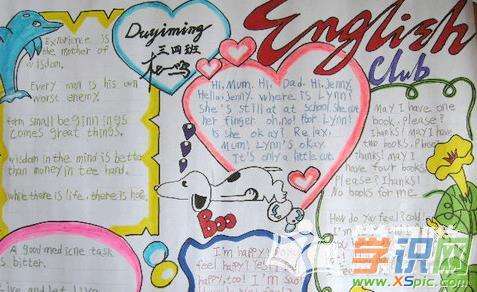 Experience is
the mother of
wisdom.
Every man is his own
worst enemy.
form small beginnings
comes great things.
wisdom in the mind is better
than money in tee hard.
while there is life, there is hope.
A good medicine task
is bitter.
Live and let live
Duyiming
三四班
杜一鸣
English
Club
Hi, Mum. Hi, Dad. Hi, Jenny.
Hello, Jenny. where is Lynn?
She's still at School. She cut
her finger oh, no! Poor Lynn!
Is she okay? Relax,
Mum! Lynn's okay.
It's only a little cut.
Boo
I'm happy
feel happy? Yes
happy, too! I'm Sad
May I have one
book, please?
Thanks! may I
have two
books, Please?
Thanks! May I
have four books,
Please? Thanks!
No books for me.
How do you feel? Cold!
I'm
学识网
www.XSpic.com